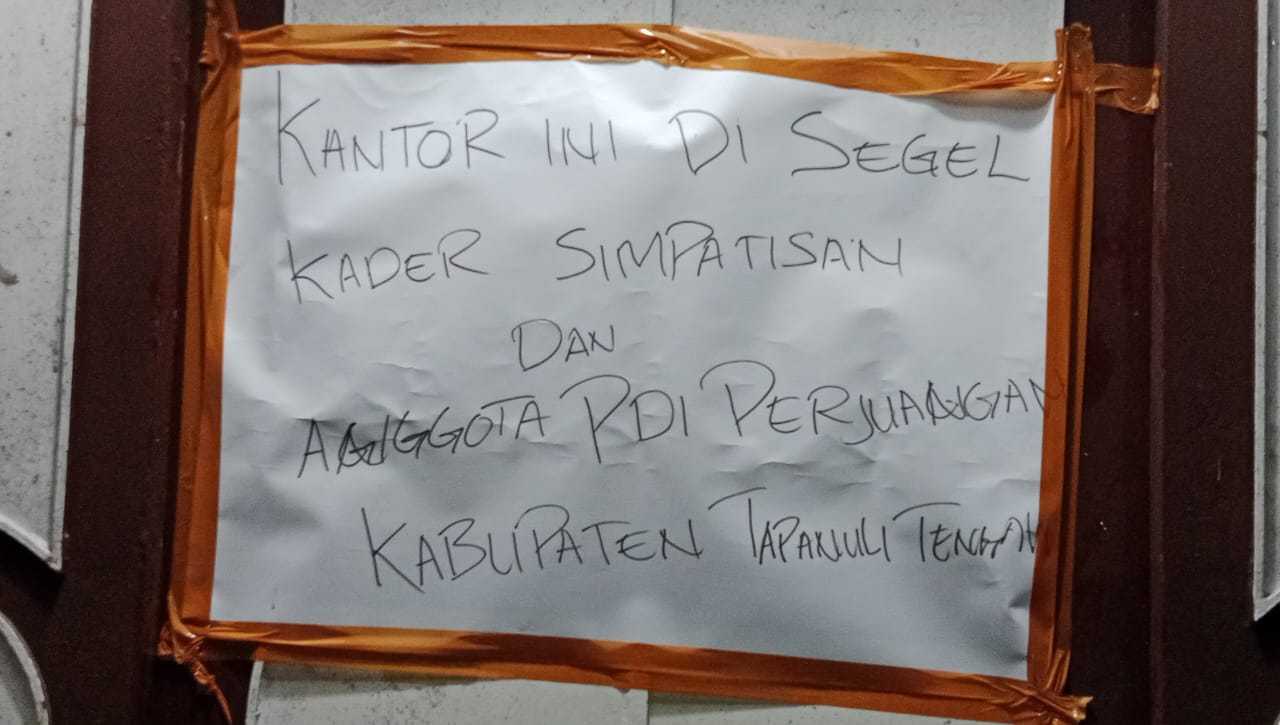 KANTOR INI DI SEGEL
KADER SIMPATISAN
DAN
ANGGOTA PDI PERJUANGAN
KABUPATEN TAPANULI TENGAH